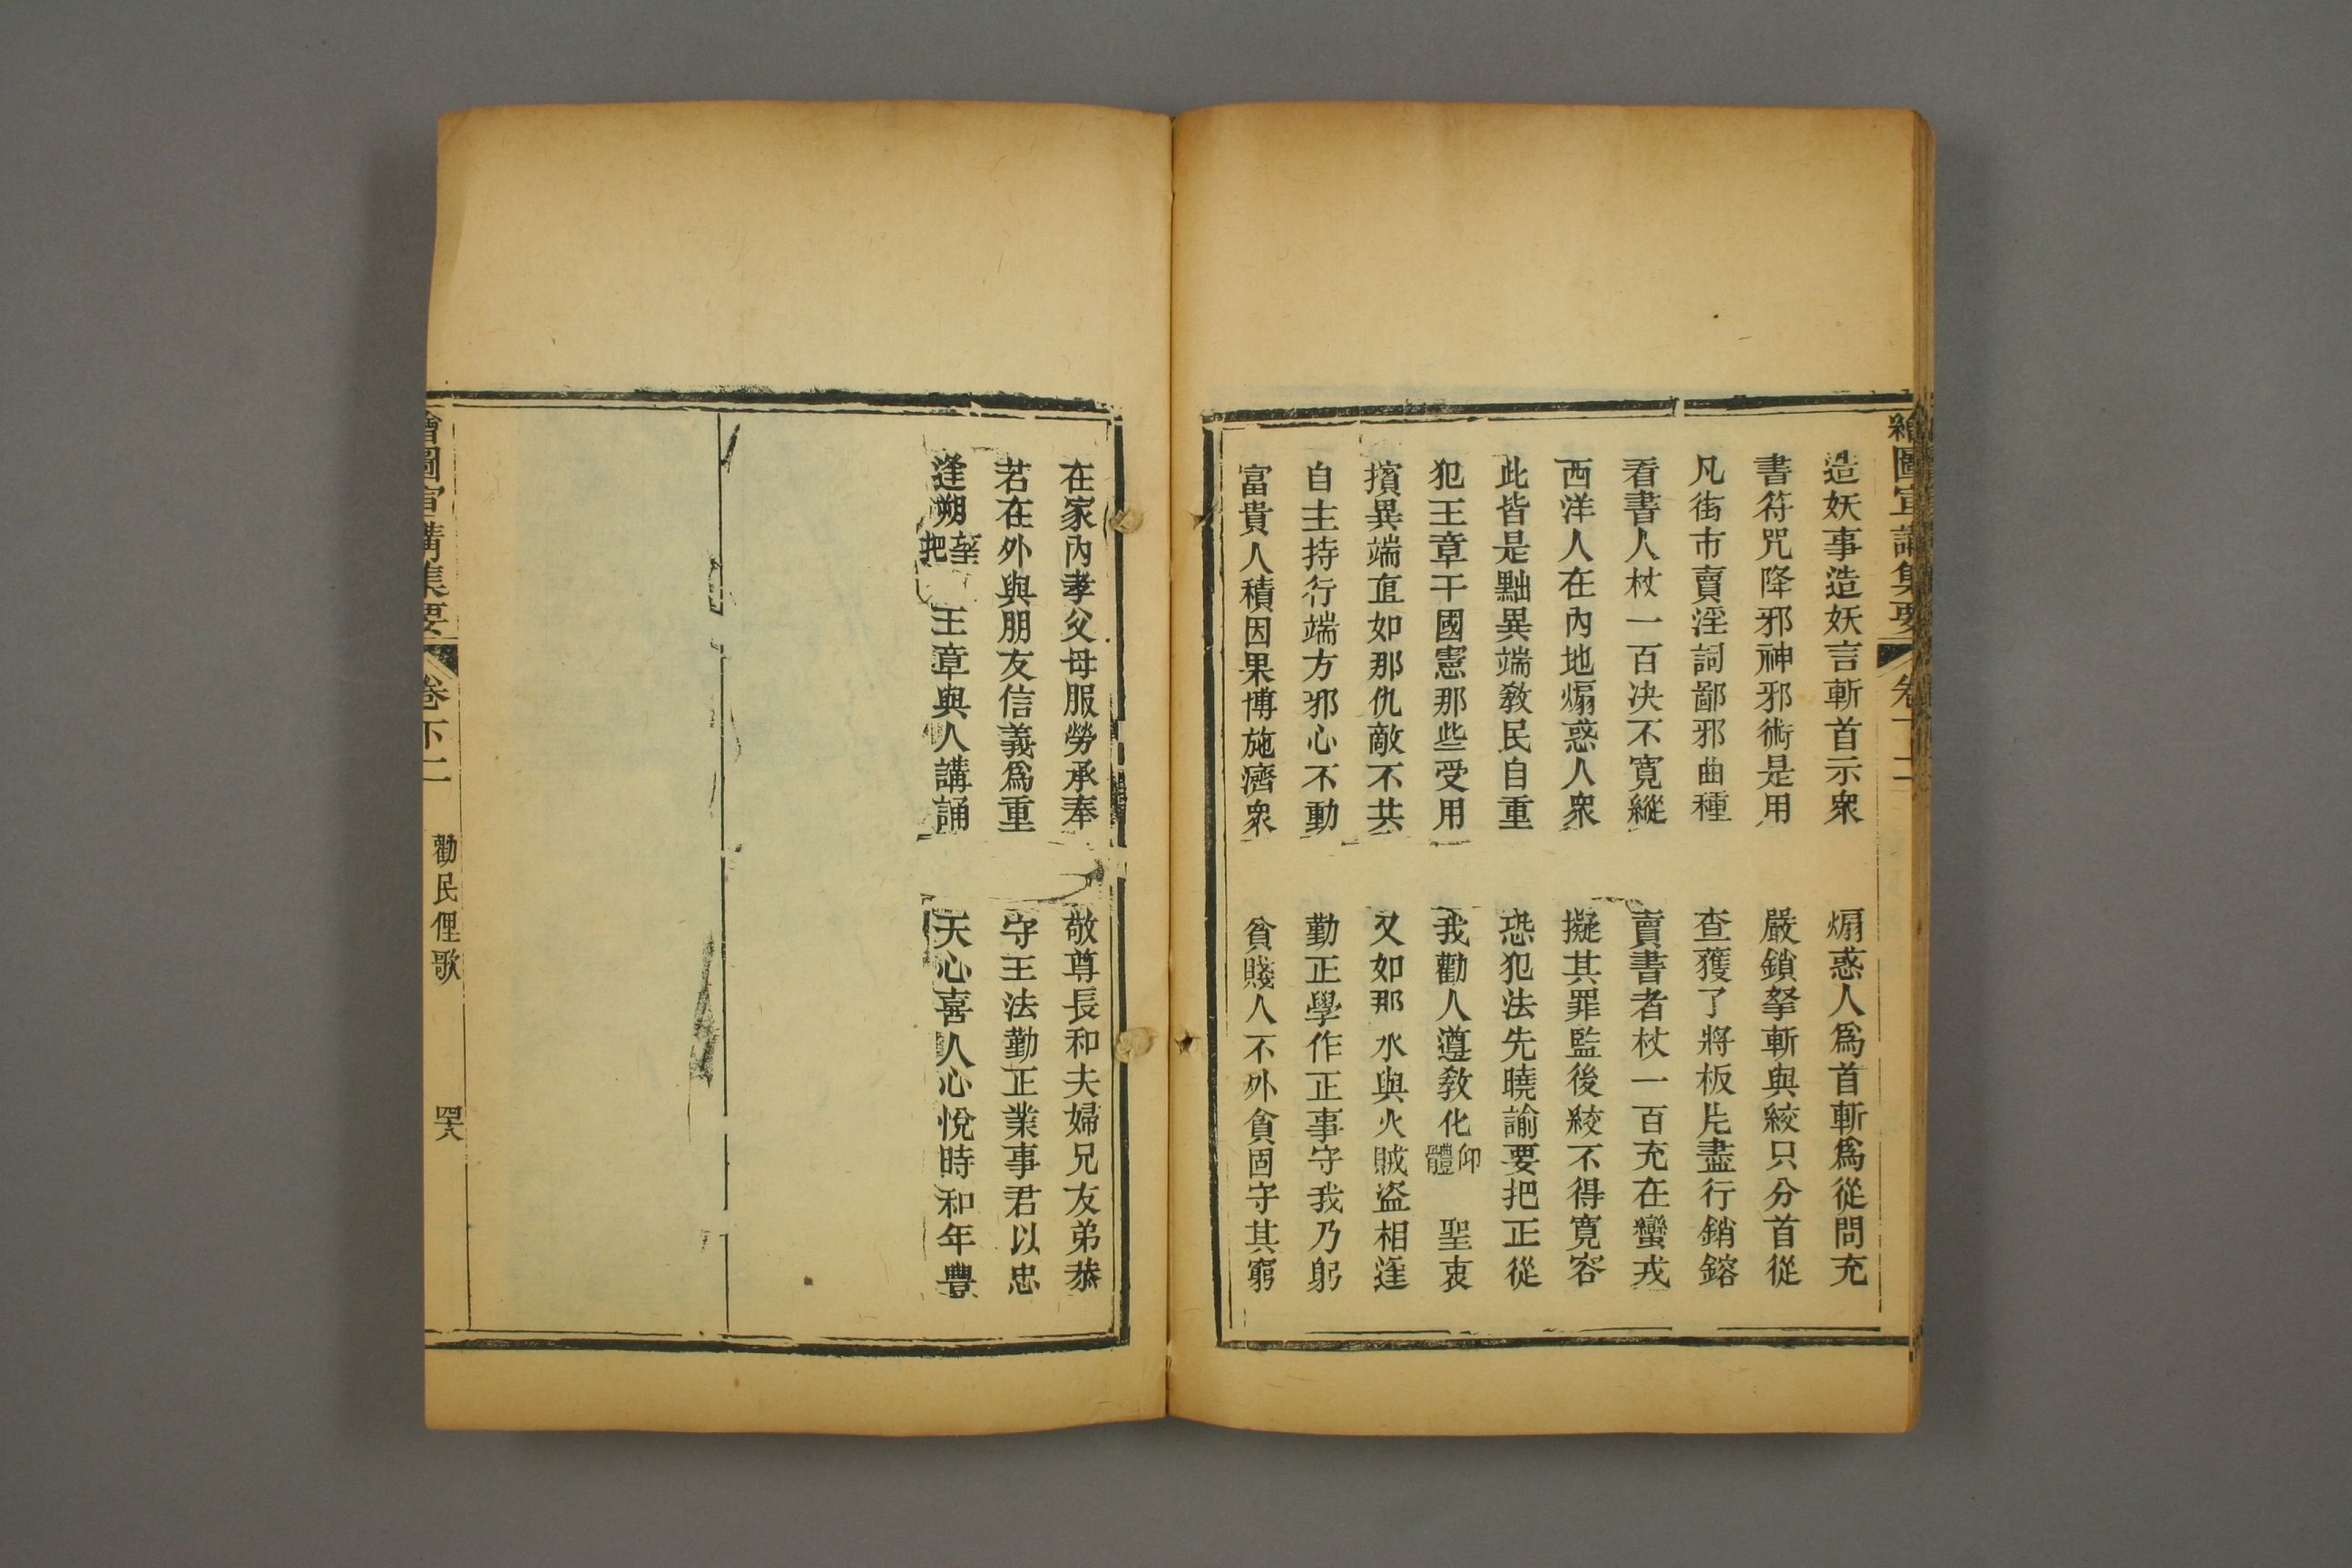 繪圖宣講集要 卷十二
造妖事造妖言斬首示衆 煽惑人爲首斬爲從問充
書符咒降邪神邪術是用 嚴鎖拏斬與絞只分首從
凡街市賣淫詞鄙邪曲種 查獲了將板片盡行銷鎔
看書人杖一百决不寬縱 賣書者杖一百充在蠻戎
西洋人在內地煽惑人衆 擬其罪監後絞不得寬容
此皆是黜異端教民自重 恐犯法先曉諭要把正從
犯王章干國憲那些受用 我勸人遵教化仰體 聖衷
擯異端直如那仇敵不共 又如那水與火賊盗相逢
自主持行端方邪心不動 勤正學作正事守我乃躬
富貴人積因果博施濟衆 貧賤人不外貪固守其窮
在家內孝父母服勞承奉 敬尊長和夫婦兄友弟恭
若在外與朋友信義爲重 守王法勤正業事君以忠
逢朔望把 王章與人講誦 天心喜人心悅時和年豐
繪圖宣講集要 卷十二 勸民俚歌 四八